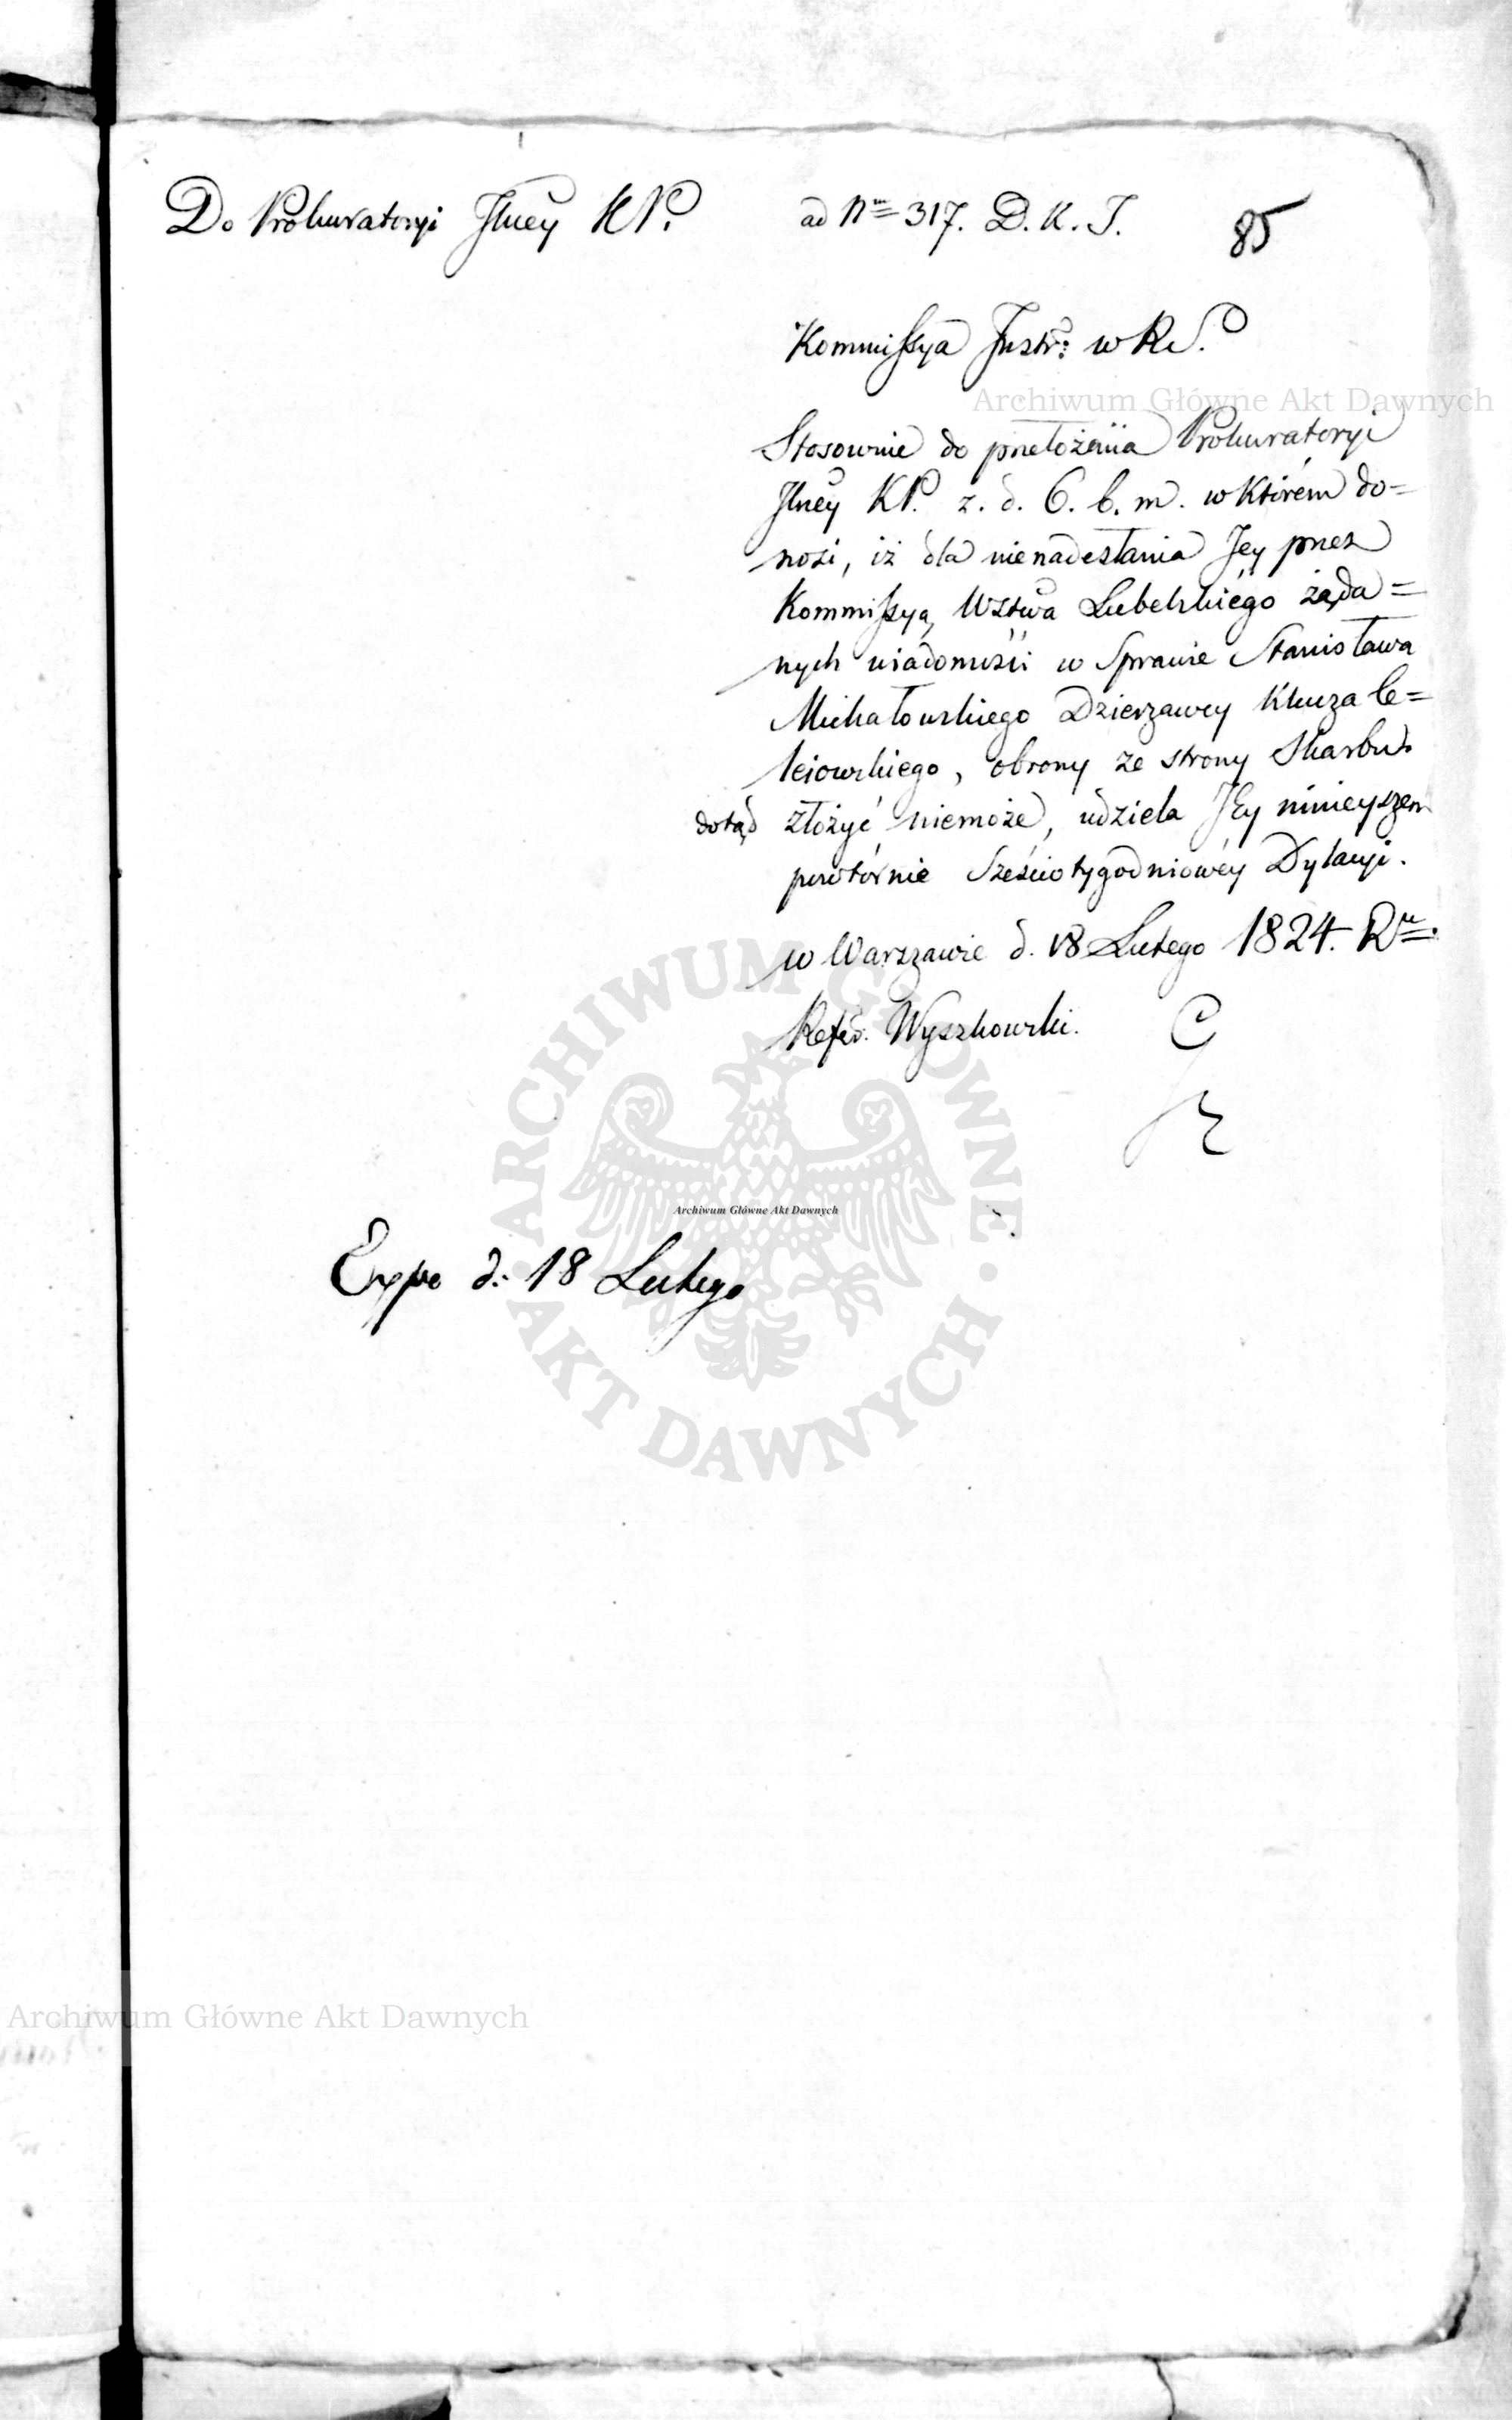 Do Prokuratoryi Jlney KP.
ad Nrm 317. D. K. J.
85
Kommissya Instr: w KP.
Archiwum Główne Akt Dawnych
Stosownie do przełożenia Prokuratoryi
Jlney KP. z. d. 6. b. m. w którém do=
nosi, iż dla nienadesłania Jey przez
Kommissyą Wztwa Lubelskiego żąda=
nych wiadomości w Sprawie Stanisława
Michałowskiego Dzierzawcy Klucza Ce=
leiowskiego, obrony ze strony Skarbu
dotąd złożyć niemoże, udziela Jey ninieyszem
powtórnie Sześciotygodniowéy Dylacyi.
w Warszawie d. 18 Lutego 1824. Ru.
Refer. Wyszkowski.
ARCHIWUM GŁÓWNE AKT DAWNYCH
Archiwum Główne Akt Dawnych
d: 18 Lutego
Archiwum Główne Akt Dawnych